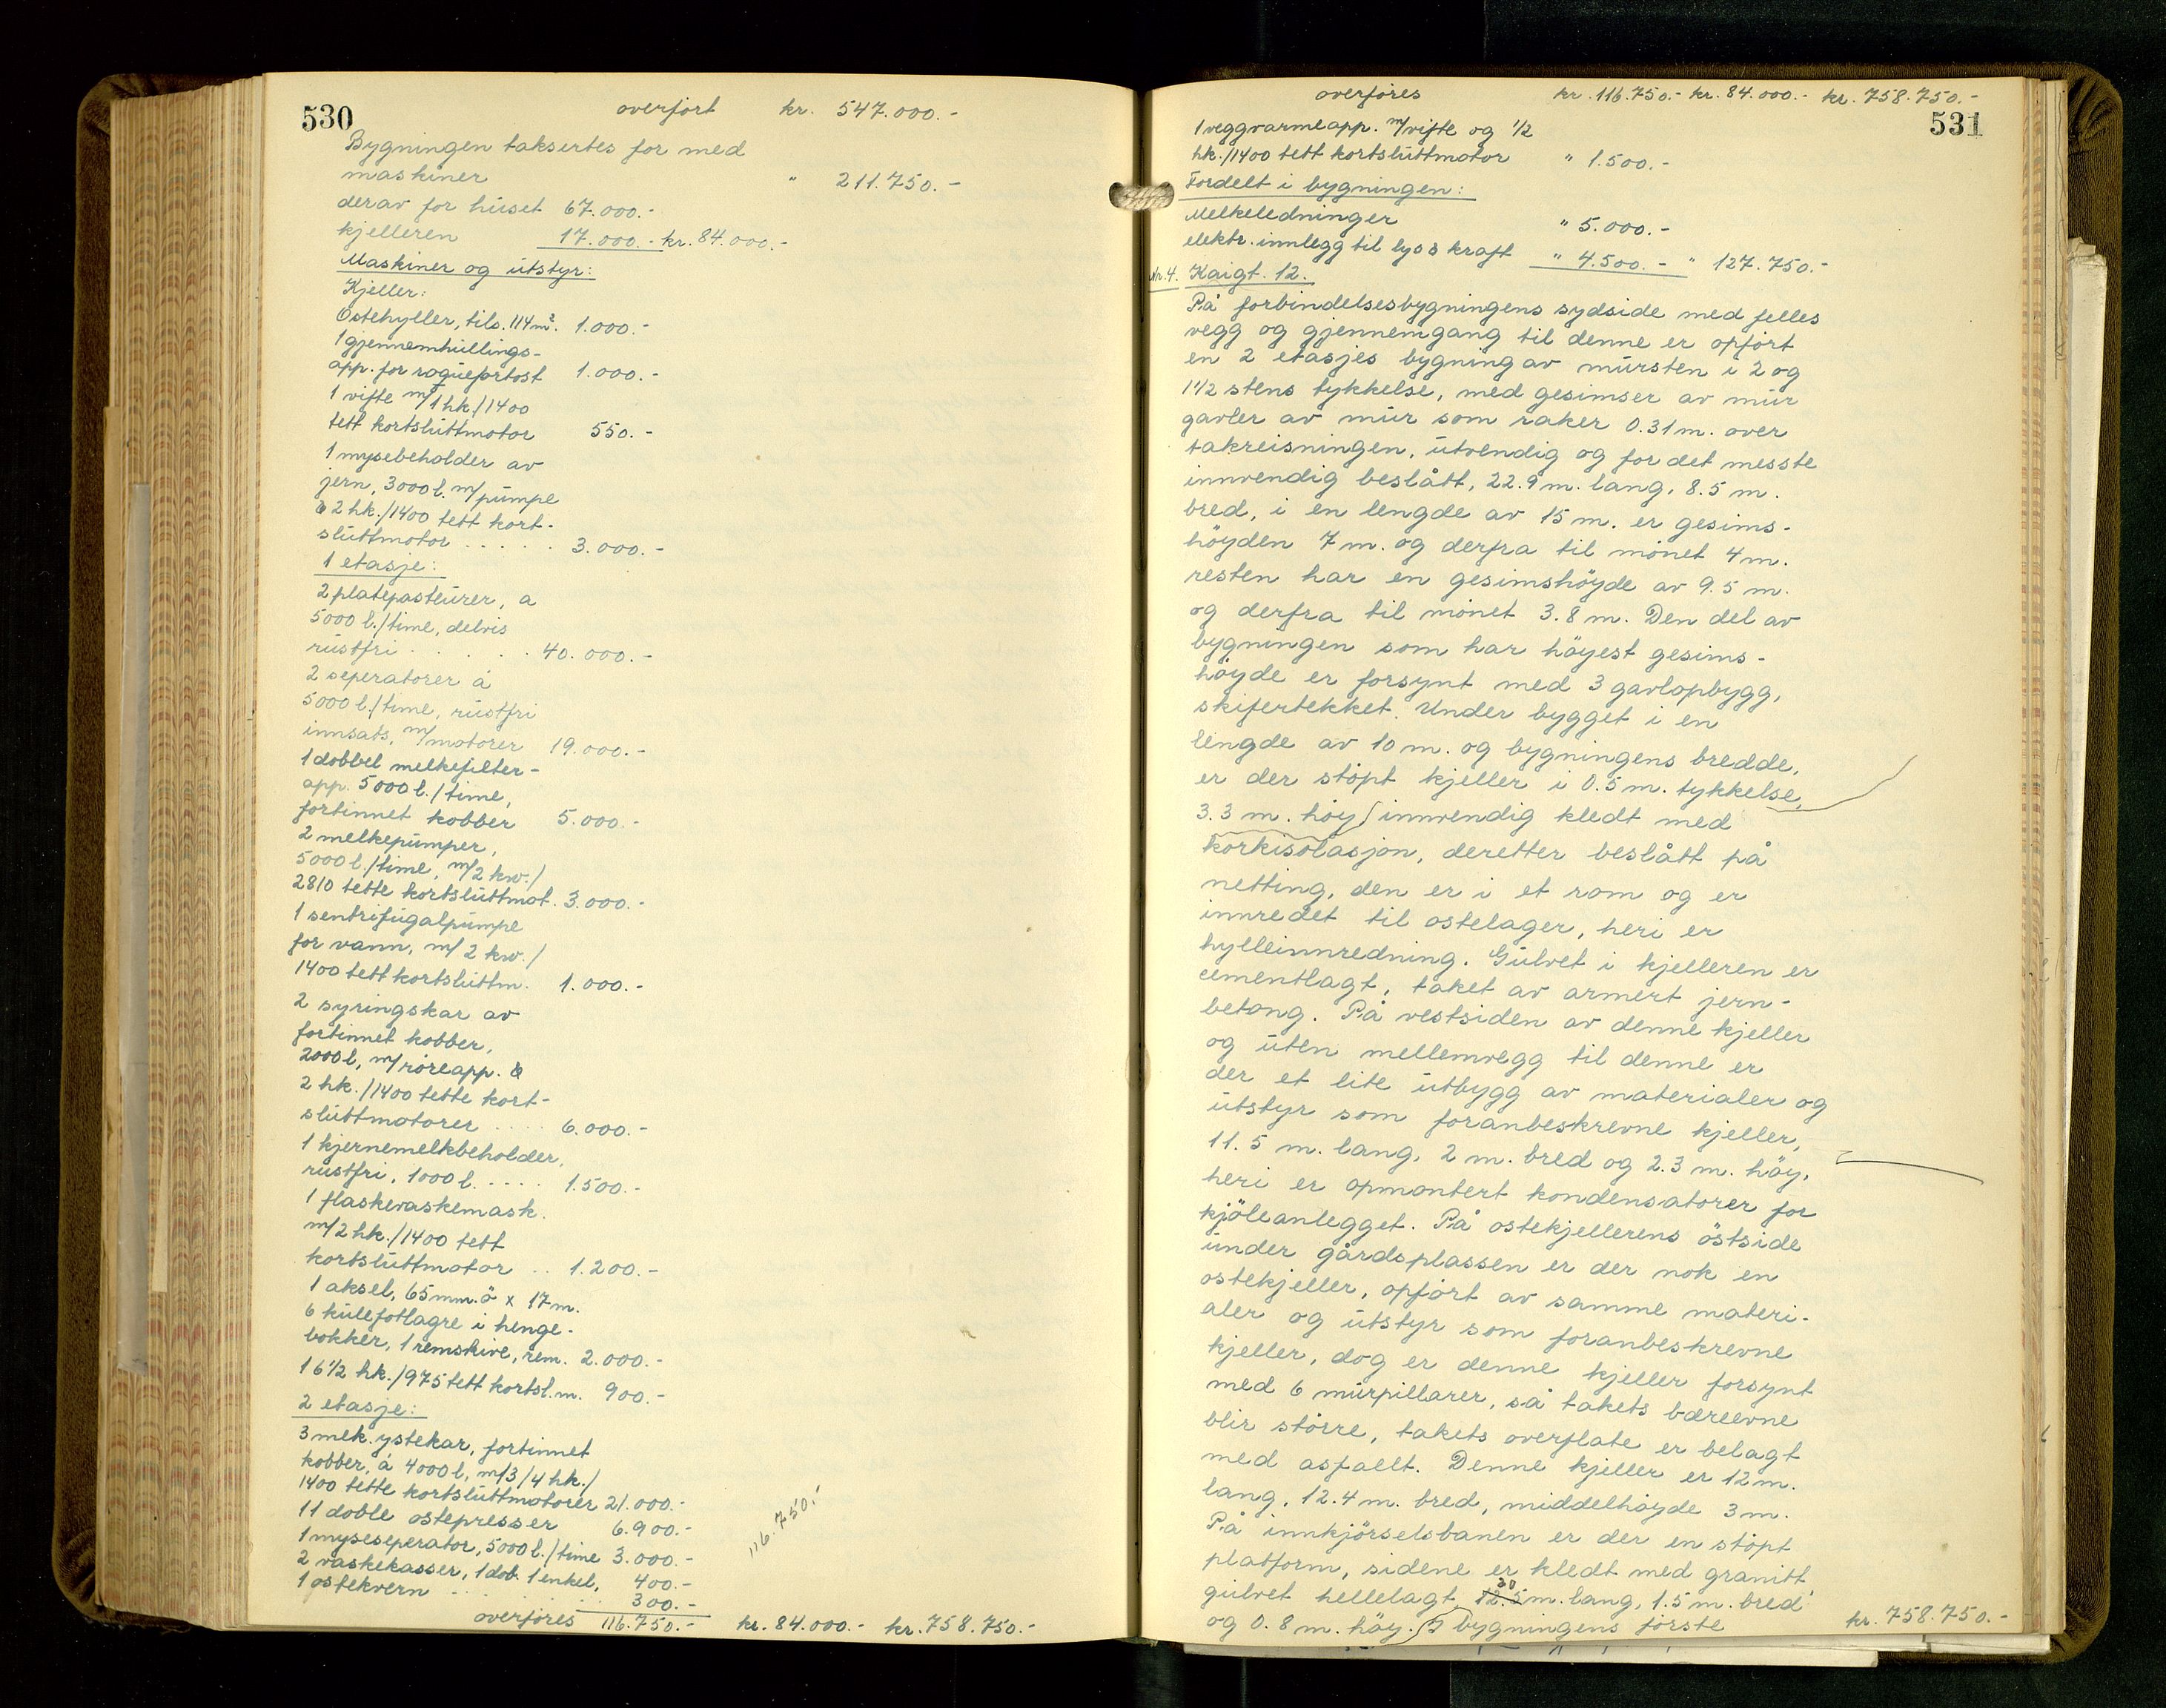 530
overført kr. 547.000.-
Bygningen taksertes for med
maskiner " 211.750.-
derav for huset 67.000.-
kjelleren 17.000.- kr. 84.000.-
Maskiner og utstyr:
Kjeller:
Ostehyller, tils. 114 m². 1.000.-
1 gjennemhullings-
app. for roquefortost 1.000.-
1 vifte m/1 hk./1400
tett kortsluttmotor 550.-
1 mysebeholder av
jern, 3000 l. m/pumpe
& 2 hk./1400 tett kort-
sluttmotor ..... 3.000.-
1 etasje:
2 platepasteurer, a
5000 l./time, delvis
rustfri ..... 40.000.-
2 seperatorer á
5000 l./time, rustfri
innsats, m/motorer 19.000.-
1 dobbel melkefilter-
app. 5000 l./time,
fortinnet kobber 5.000.-
2 melkepumper,
5000 l./time, m/2 kw./
2810 tette kortsluttmot. 3.000.-
1 sentrifugalpumpe
for vann, m/2 kw./
1400 tett kortsluttm. 1.000.-
2 syringskar av
fortinnet kobber,
2000 l, m/røreapp. &
2 hk./1400 tette kort-
sluttmotorer .... 6.000.-
1 kjernemelkbeholder,
rustfri, 1000 l. .... 1.500.-
1 flaskevaskemask.
m/2 hk./1400 tett
kortsluttmotor .. 1.200.-
1 aksel, 65 mm. ö x 17 m.
6 kulefotlagre i henge-
bokker, 1 remskive, rem. 2.000.-
1 6 1/2 hk./975 tett kortsl.m. 900.-
2 etasje:
3 mek. ystekar, fortinnet
kobber, á 4000 l, m/3/4 hk./
1400 tette kortsluttmotorer 21.000.-
11 doble ostepresser 6.900.-
1 myseseperator, 5000 l./time 3.000.-
2 vaskekasser, 1 dob. 1 enkel, 400.-
1 ostekvern ..... 300.-
116.750.-
overføres 116.750.- kr. 84.000.- kr. 758.750.-
overføres kr. 116.750.- kr. 84.000.- kr. 758.750.-
531
1 veggvarmeapp. m/vifte og 1/2
hk./1400 tett kortsluttmotor " 1.500.-
Fordelt i bygningen:
Melkeledninger " 5.000.-
elektr. innlegg til lys & kraft " 4.500.- " 127.750.-
Nr. 4. Kaigt. 12.
På forbindelsesbygningens sydside med felles
vegg og gjennemgang til denne er opført
en 2 etasjes bygning av mursten i 2 og
1 1/2 stens tykkelse, med gesimser av mur
gavler av mur som raker 0.31 m. over
takreisningen, utvendig og for det messte
innvendig beslått, 22.9 m. lang, 8.5 m.
bred, i en lengde av 15 m. er gesims-
höyden 7 m. og derfra til mønet 4 m.
resten har en gesimshöyde av 9.5 m.
og derfra til mønet 3.8 m. Den del av
bygningen som har höyest gesims-
höyde er forsynt med 3 gavlopbygg,
skifertekket. Under bygget i en
lengde av 10 m. og bygningens bredde,
er der støpt kjeller i 0.5 m. tykkelse,
3.3 m. höy, innvendig kledt med
korkisolasjon, deretter beslått på
netting, den er i et rom og er
innredet til ostelager, heri er
hylleinnredning. Gulvet i kjelleren er
cementlagt, taket av armert jern-
betong. På vestsiden av denne kjeller
og uten mellemvegg til denne er
der et lite utbygg av materialer og
utstyr som foranbeskrevne kjeller,
11.5 m. lang, 2 m. bred og 2.3 m. höy,
heri er opmontert kondensatorer for
kjöleanlegget. På ostekjellerens östside
under gårdsplassen er der nok en
ostekjeller, opført av samme materi-
aler og utstyr som foranbeskrevne
kjeller, dog er denne kjeller forsynt
med 6 murpillarer, så takets bæreevne
blir større, takets overflate er belagt
med asfallt. Denne kjeller er 12 m.
lang, 12.4 m. bred, middelhøyde 3 m.
På innkjörselsbanen er der en støpt
platform, sidene er kledt med granitt,
30
gulvet hellelagt, 12.5 m. lang, 1.5 m. bred
og 0.8 m. höy. I bygningens første kr. 758.750.-